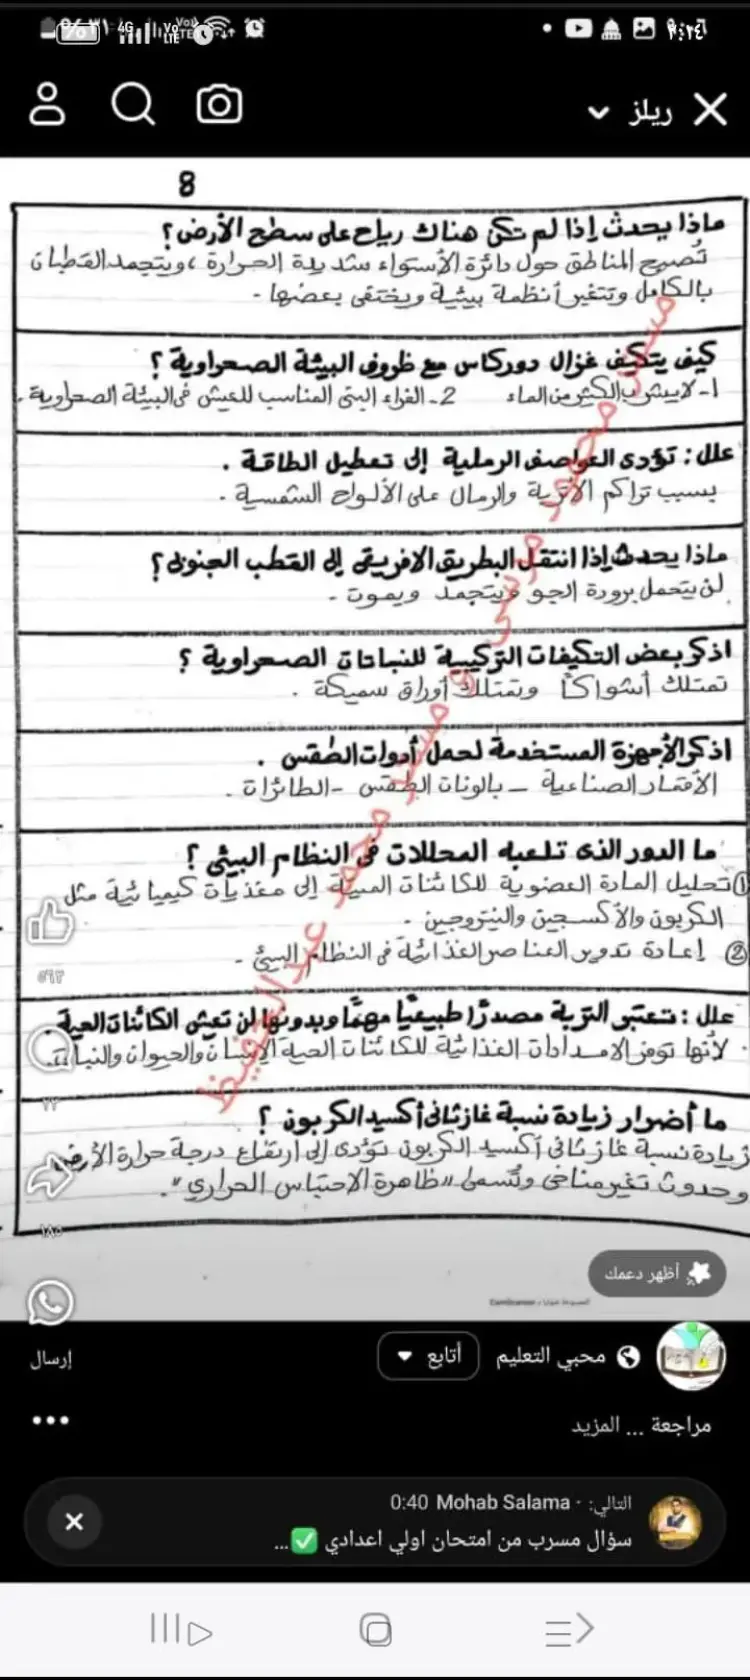 ٩:٢٤
4G
٪٣١
ريلز
8
ماذا يحدث إذا لم تكن هناك رياح على سطح الأرض؟
تصبح المناطق حول دائرة الأستواء شديدة الحرارة، ويتجمد القطبان
بالكامل وتتغير أنظمة بيئية ويختفى بعضها.
كيف يتكيف غزال دوركاس مع ظروف البيئة الصحراوية؟
1- لا يشرب الكثير من الماء 2- الفراء البنى المناسب للعيش فى البيئة الصحراوية.
علل: تؤدى العواصف الرملية إلى تعطيل الطاقة.
بسبب تراكم الأتربة والرمال على الألواح الشمسية.
ماذا يحدث إذا انتقل البطريق الافريقى إلى القطب الجنوبى؟
لن يتحمل برودة الجو ويتجمد ويموت.
اذكر بعض التكيفات التركيبية للنباتات الصحراوية؟
تمتلك أشواكاً وتمتلك أوراق سميكة.
اذكر الأجهزة المستخدمة لحمل أدوات الطقس.
الأقمار الصناعية - بالونات الطقس - الطائرات.
ما الدور الذى تلعبه المحللات فى النظام البيئى؟
① تحليل المادة العضوية للكائنات الميتة إلى مغذيات كيميائية مثل
الكربون والأكسجين والنيتروجين.
② إعادة تدوير العناصر الغذائية فى النظام البيئى.
علل: تعتبر التربة مصدرًا طبيعيًا مهمًا وبدونها لن تعيش الكائنات الحية.
لأنها توفر الامدادات الغذائية للكائنات الحية الإنسان والحيوان والنبات.
ما أضرار زيادة نسبة غاز ثانى أكسيد الكربون؟
زيادة نسبة غاز ثانى أكسيد الكربون تؤدى إلى ارتفاع درجة حرارة الأرض
وحدوث تغير مناخى وتسمى "ظاهرة الاحتباس الحرارى".
مستر محمود مرسى و مستر محمد عبدالحفيظ
٥٩٣
٢٢
١٨٥
أظهر دعمك
CamScanner
إرسال
محبي التعليم
أتابع
مراجعة ... المزيد
التالي: · Mohab Salama 0:40
سؤال مسرب من امتحان اولي اعدادي ✅...